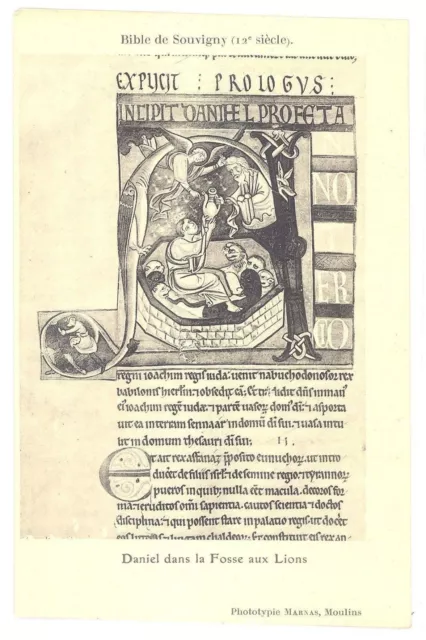 Bible de Souvigny (12e siècle).
EXPLICIT : PROLOGVS :
INCIPIT DANIEL PROFETA
N
NO
T
ER
CO
regni ioachim regis iuda. uenit nabuchodonosor rex
babilonis hierlm & obsedit eā. & tdidit dn̄s in manu
ei ioachim regē iudæ. & partē uasorū domꝰ dī. & asporta
uit ea in terram sennaar in domū dī sui. & uasa intu
lit in domum thesauri dī sui. II.
Et ait rex asfanaz p̄posito eunuchorū. ut intro
ducēt de filiis isrl & de semine regio & tyrannorū
pueros in quibꝫ nulla eēt macula. decoros for
ma & eruditos omī sapientia. cautos scientia & doctos
disciplina. & qui possent stare in palatio regis. ut docēt
eos litteras & linguam chaldeorū. Et constituit eis rex an
Daniel dans la Fosse aux Lions
Phototypie MARNAS, Moulins